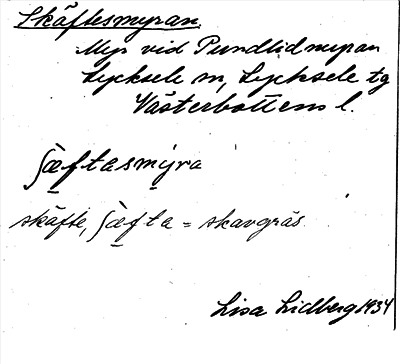 Skäftesmyran.
Myr vid Pundlidmyran
Lycksele sn, Lycksele tg
Västerbottens l.
ʃæftasmyra
skäfte, ʃæfta = skavgräs
Lisa Lidberg 1934